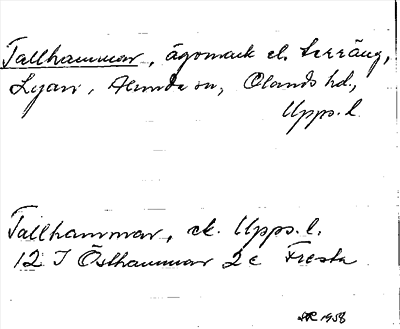 Tallhammar, ägomark el. terräng,
Lyan, Alunda sn, Olands hd,
Upps. l.
Tallhammar, ek. Upps. l.
12 I Östhammar 2 c Fresta
1958